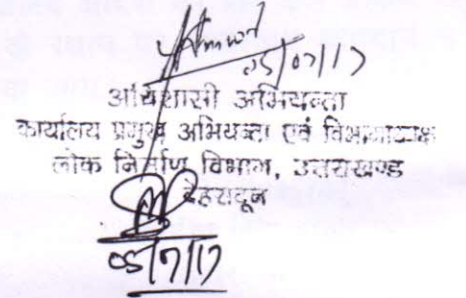 05/07/17
अधिशासी अभियन्ता
कार्यालय प्रमुख अभियन्ता एवं विभागाध्यक्ष
लोक निर्माण विभाग, उत्तराखण्ड
देहरादून
05/7/17